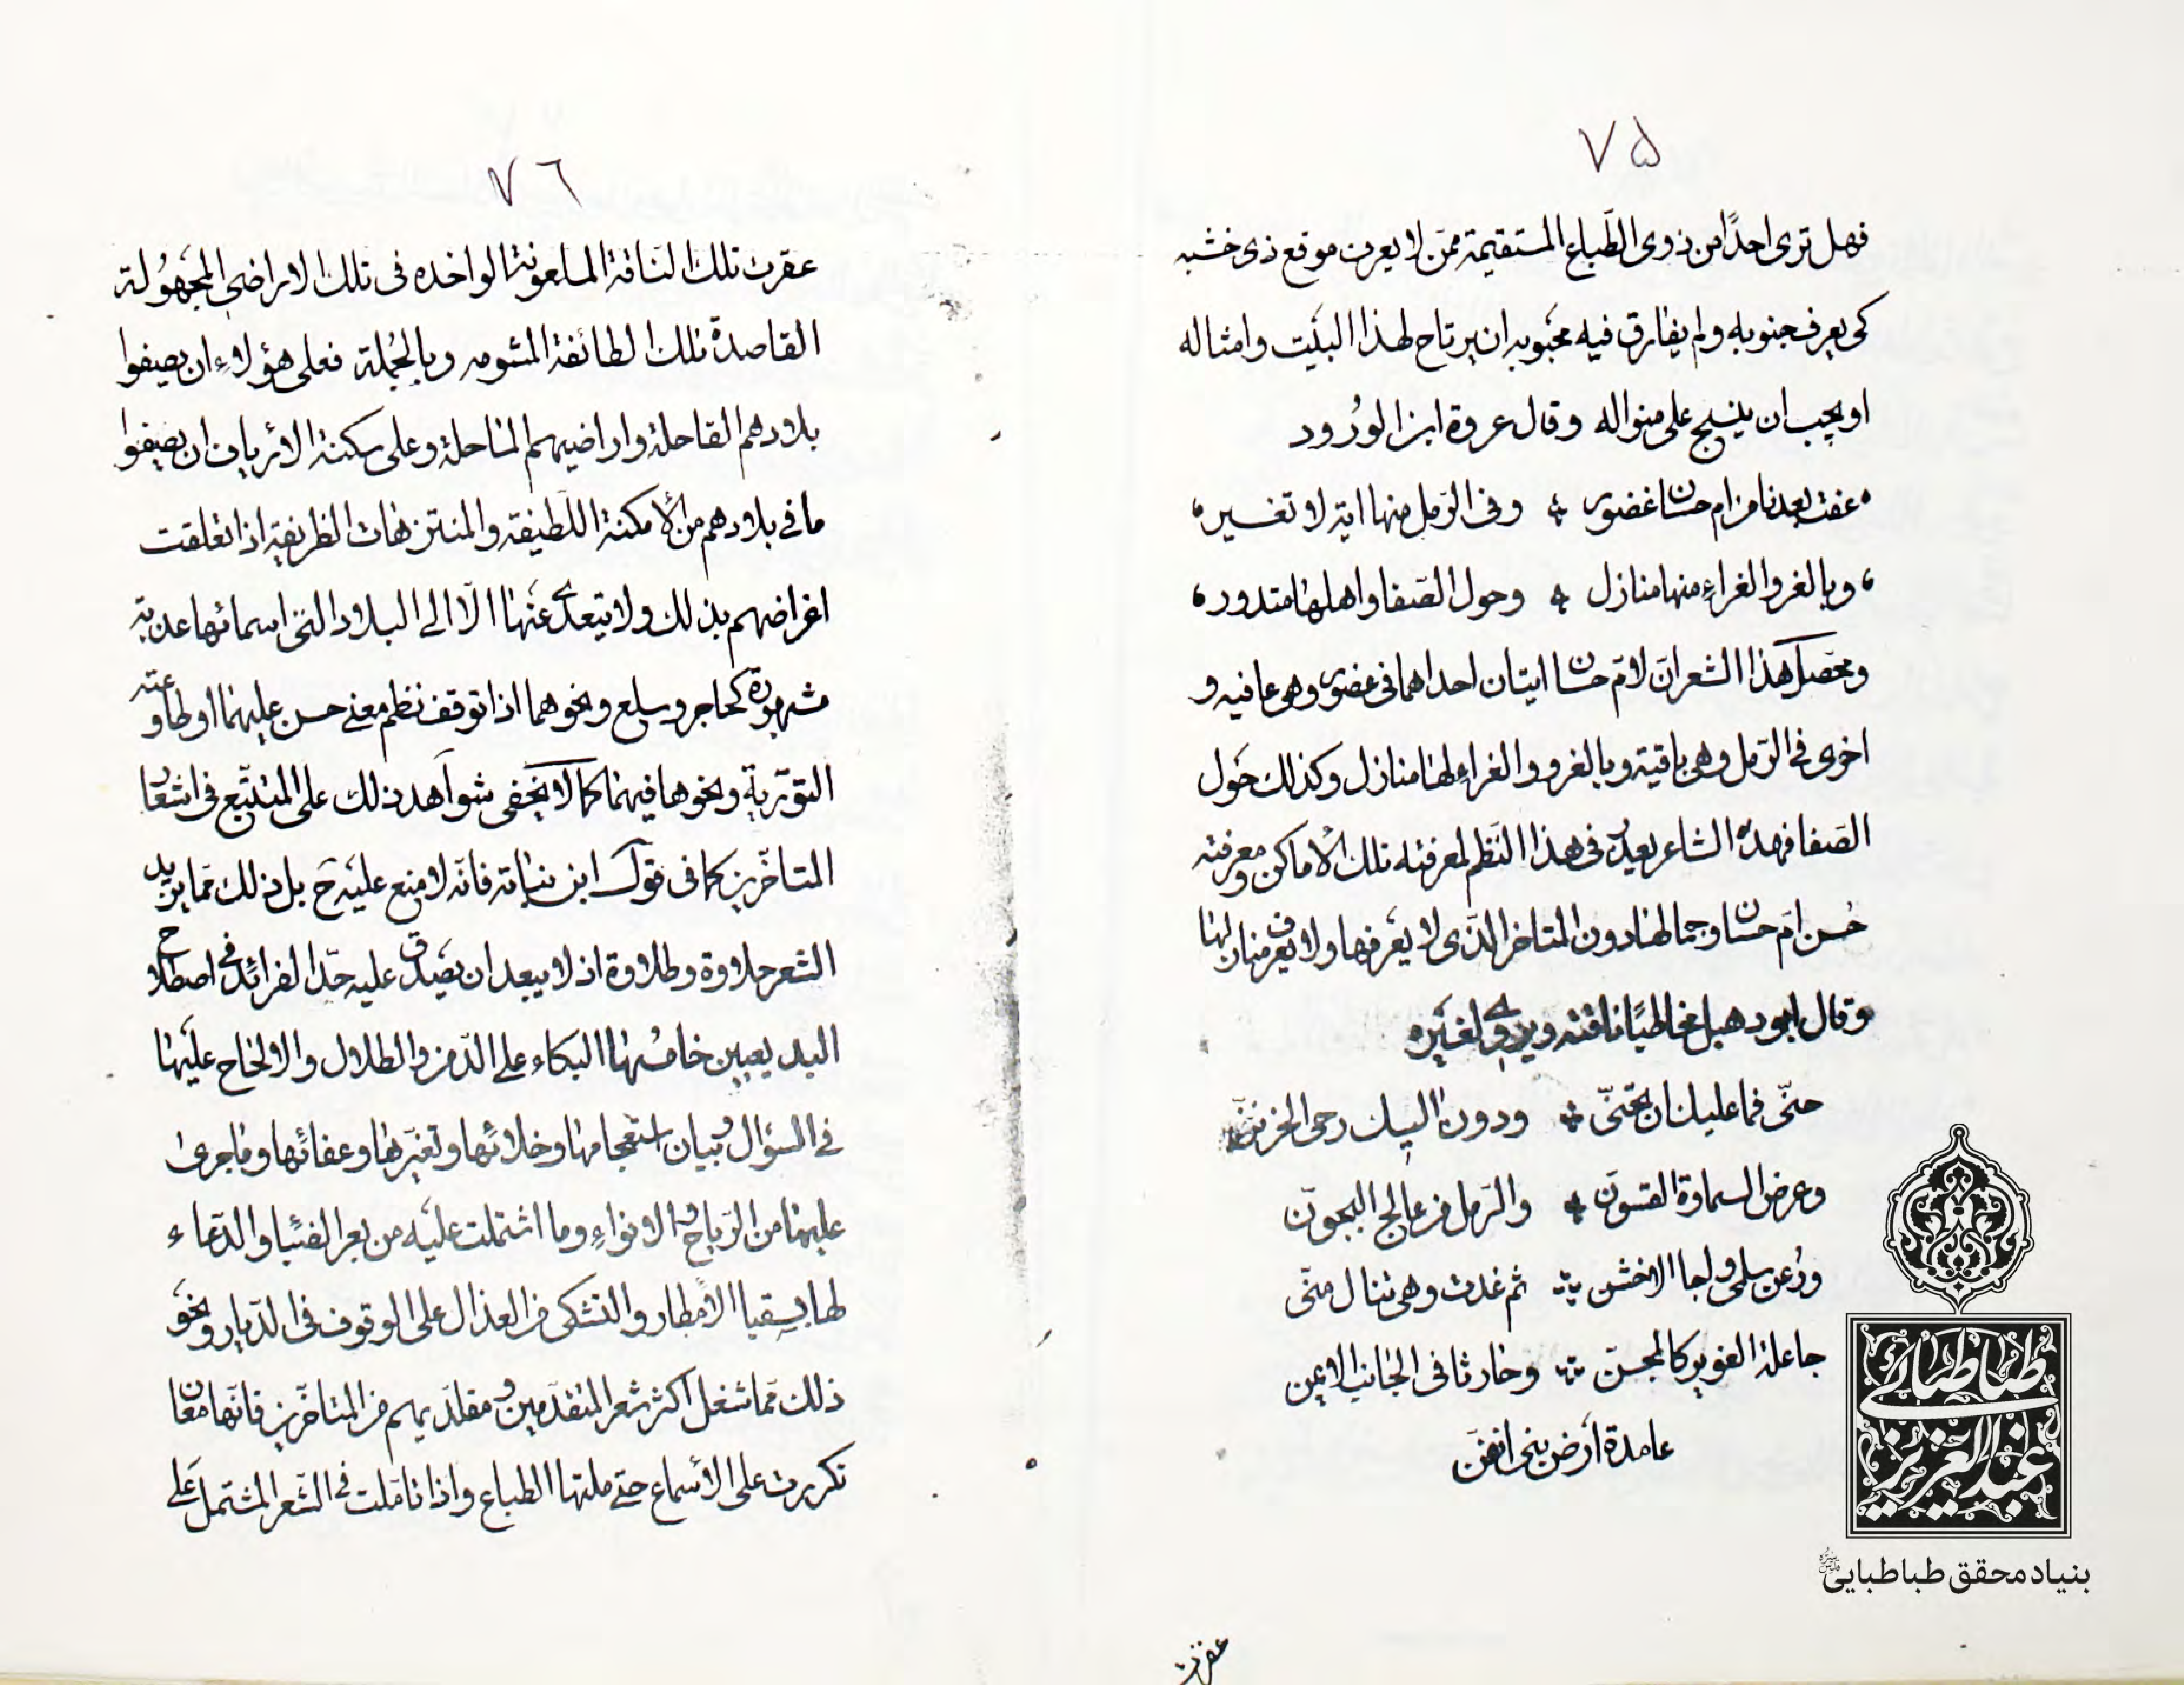 ٧۵
فهل ترى احدًا من ذوى الطّباع المستقيمة ممّن لا يعرف موقع ذى خشبه
كى يعرف جنوبه ولم يفارق فيه محبوبه ان يرتاح لهذا البيت وامثاله
او يجب ان ينسج على منواله وقال عروة ابن الورود
عفت بعدنا من ام حسان غضور وفى الرّمل منها اية لا تغسير
وبالغر والغراء منها منازل وحول الصّفا واهلها متدور
ومحصّل هذا الشعر ان لامّ حسان ايتان احداهما فى غضور وهى عافيه و
اخرى فى الرّمل وهى باقية وبالغرو والغراء لها منازل وكذلك حول
الصّفا فهذه الشاعر يعدّ فى هذا النّظم لمعرفته تلك الاماكن ومعرفته
حُسن امّ حسان وجمالها دون المتاخر الذى لا يعرفها ولا يعرف منازلها
وقال ابو دهبل مخاطبًا ناقته ويروى لغيره
حنّى فما عليك ان تحنّى ودون اليك رحى الحزنزنّ
وعرض السماوة القسونّ والرّمل من عالج البحونّ
ورُعن سلمى ولجا الاخشن ثم غدت وهى تنال منّى
جاعلة الغوير كالمجسنّ وحارثا فى الجانب الايمن
عامدة ارض بنى انفنّ
عقرت
٧٦
عقرت تلك النّاقة الملعونة الواخده فى تلك الاراضى المجهُولة
القاصدة تلك الطائفة المشومه وبالجُملة فعلى هؤلاء ان يصيفوا
بلادهم القاحلة واراضيهم الماحلة وعلى سكنة الارياف ان يصيفوا
ما فى بلادهم من الأمكنة اللّطيفة والمنتزهات الظريفة اذا تعلقت
اغراضهم بذلك ولا يتعدى عنها الّا الى البلاد التى اسمائها عذبة
مشهورة كحاجر وسلع ونحوهما اذا توقف نظم معنى حسن عليهما او لطاوعته
التوّرية ونحوها فيهما كما لا يخفى شواهد ذلك على المتتبّع فى اشعار
المتاخّرين كما فى قول ابن نباتة فانّه لا منع عليه ح بل ذلك ممّا يزيد
الشعر حلاوة وطلاوة اذ لا يبعد ان يصدق عليه حدّ الفرائد فى اصطلاح
البديعيين خامسُها البكاء على الدّمن والطلال والالحاح عليها
فى السؤال وبيان استعجامها وخلائها وتغيّرها وعفائها وما جرى
عليها من الرّياح والانواء وما اشتملت عليه من بعر الظبّا والدّعاء
لها بسقيا الأمطار والتشكى من العذال على الوقوف فى الدّيار ونحو
ذلك ممّا شغل اكثر شعر المتقدّمين ومقلّديهم من المتاخّرين فانّها معان
تكررت على الأسماع حتى ملتها الطباع واذا تامّلت فى الشّعر المشتمل على
طباطبائى
عبدالعزيز
بنیاد محقق طباطبایی